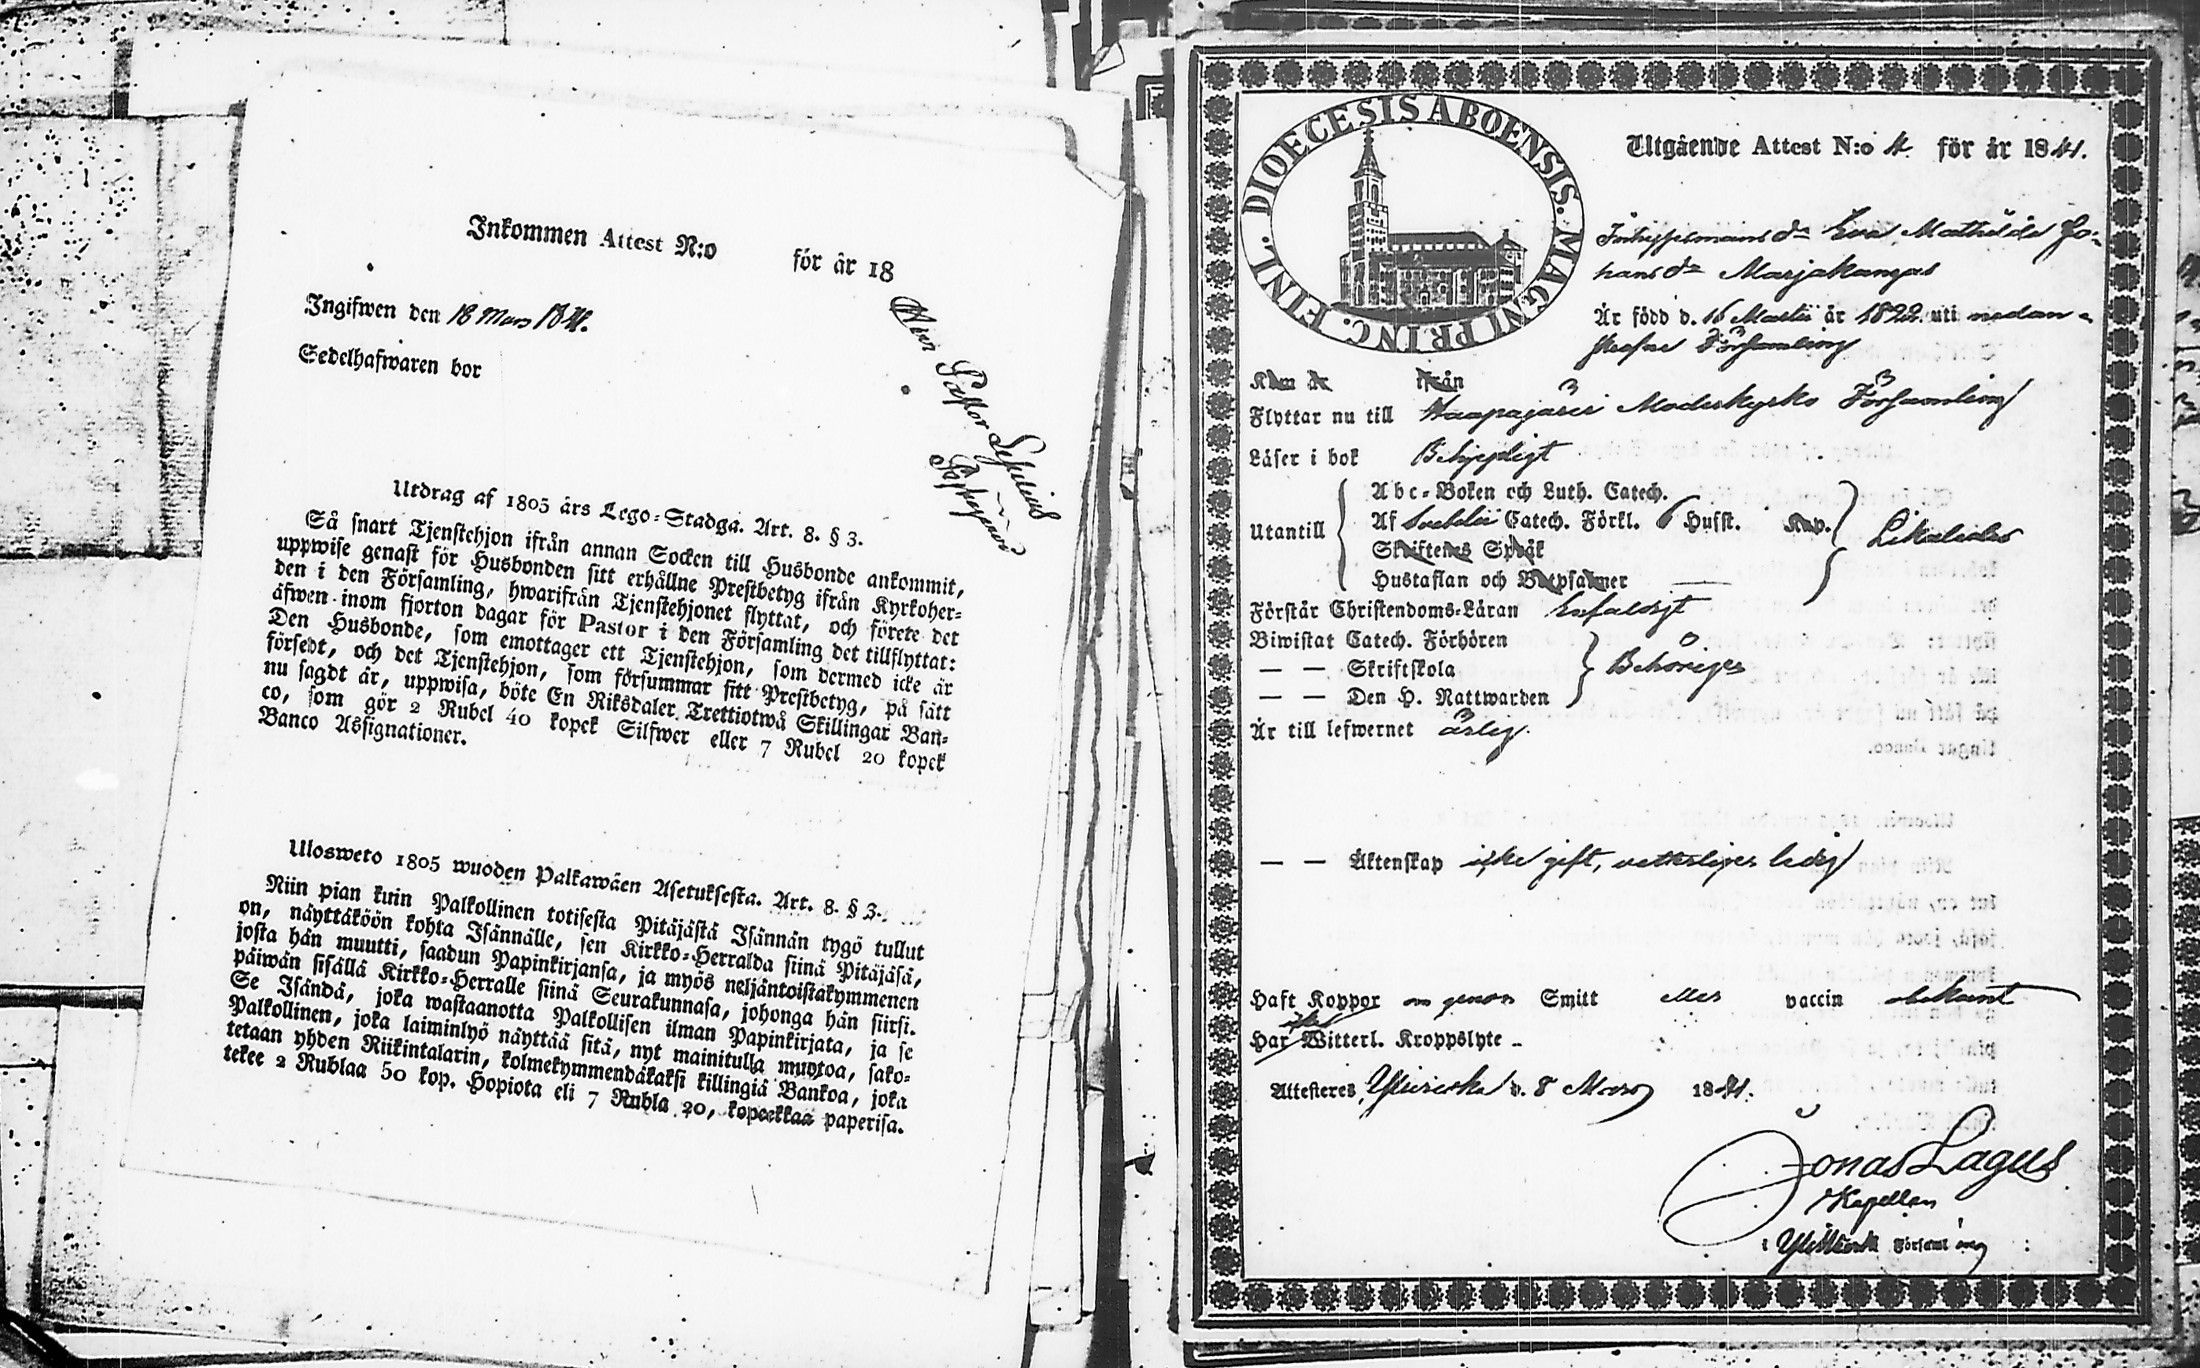 Inkommen Attest N:o för år 18
Ingifwen den 18 Mars 1841.
Sedelhafwaren bor
Herr Pastor
Utdrag af 1805 års Lego-Stadga. Art. 8. § 3.
Så snart Tjenstehjon ifrån annan Socken till Husbonde ankommit,
uppwise genast för Husbonden sitt erhållne Prestbetyg ifrån Kyrkoher-
den i den Församling, hwarifrån Tjenstehjonet flyttat, och förete det
äfwen inom fjorton dagar för Pastor i den Församling det tillflyttat:
Den Husbonde, som emottager ett Tjenstehjon, som dermed icke är
försedt, och det Tjenstehjon, som försummar sitt Prestbetyg, på sätt
nu sagdt är, uppwisa, böte En Riksdaler Trettiotwå Skillingar Ban-
co, som gör 2 Rubel 40 kopek Silfwer eller 7 Rubel 20 kopek
Banco Assignationer.
Ulosweto 1805 wuoden Palkawäen Asetuksesta. Art. 8. § 3.
Niin pian kuin Palkollinen totisesta Pitäjästä Isännän tygö tullut
on, näyttäköön kohta Isännälle, sen Kirkko-Herralda siinä Pitäjäsä,
josta hän muutti, saadun Papinkirjansa, ja myös neljäntoistakymmenen
päiwän sisällä Kirkko-Herralle siinä Seurakunnasa, johonga hän siirsi.
Se Isändä, joka wastaanotta Palkollisen ilman Papinkirjata, ja se
Palkollinen, joka laiminlyö näyttää sitä, nyt mainitulla muotoa, sako-
tetaan yhden Riikintalarin, kolmekymmendäkaksi killingiä Bankoa, joka
tekee 2 Rublaa 50 kop. Hopiota eli 7 Rubla 20, kopeekkaa paperisa.
DIOECESIS ABOENSIS. MAGNI PRINC. FINL.
Utgående Attest N:o 4 för år 1841.
Inhysesmans dr Eva Mathilda Jo-
hans dr Marjakangas
Är född d. 16 Martii år 1822. uti nedan-
skrefne Församling
Kom ifrån
Flyttar nu till Haapajärvi Moderkyrko Församling
Läser i bok Behjeligt
Abc-Boken och Luth. Catech.
Utantill Af Svebelii Catech. Förkl. 6 Husst. Kap. Likaledes
Skriftenes Språk
Hustaflan och Botpsalmer
Förstår Christendoms-Läran Enfaldigt
Biwistat Catech. Förhören
— — Skriftskola Behörigen
— — Den H. Nattwarden
Är till lefwernet ärlig.
— — Äktenskap icke gift, vetterligen ledig
Haft Koppor om genom Smitt eller vaccin obekant
icke
Har Witterl. Kroppslyte
Attesteres, Ylivieska d. 8 Mars 1841.
Jonas Lagus
Kapellan
i Ylivieska Församling